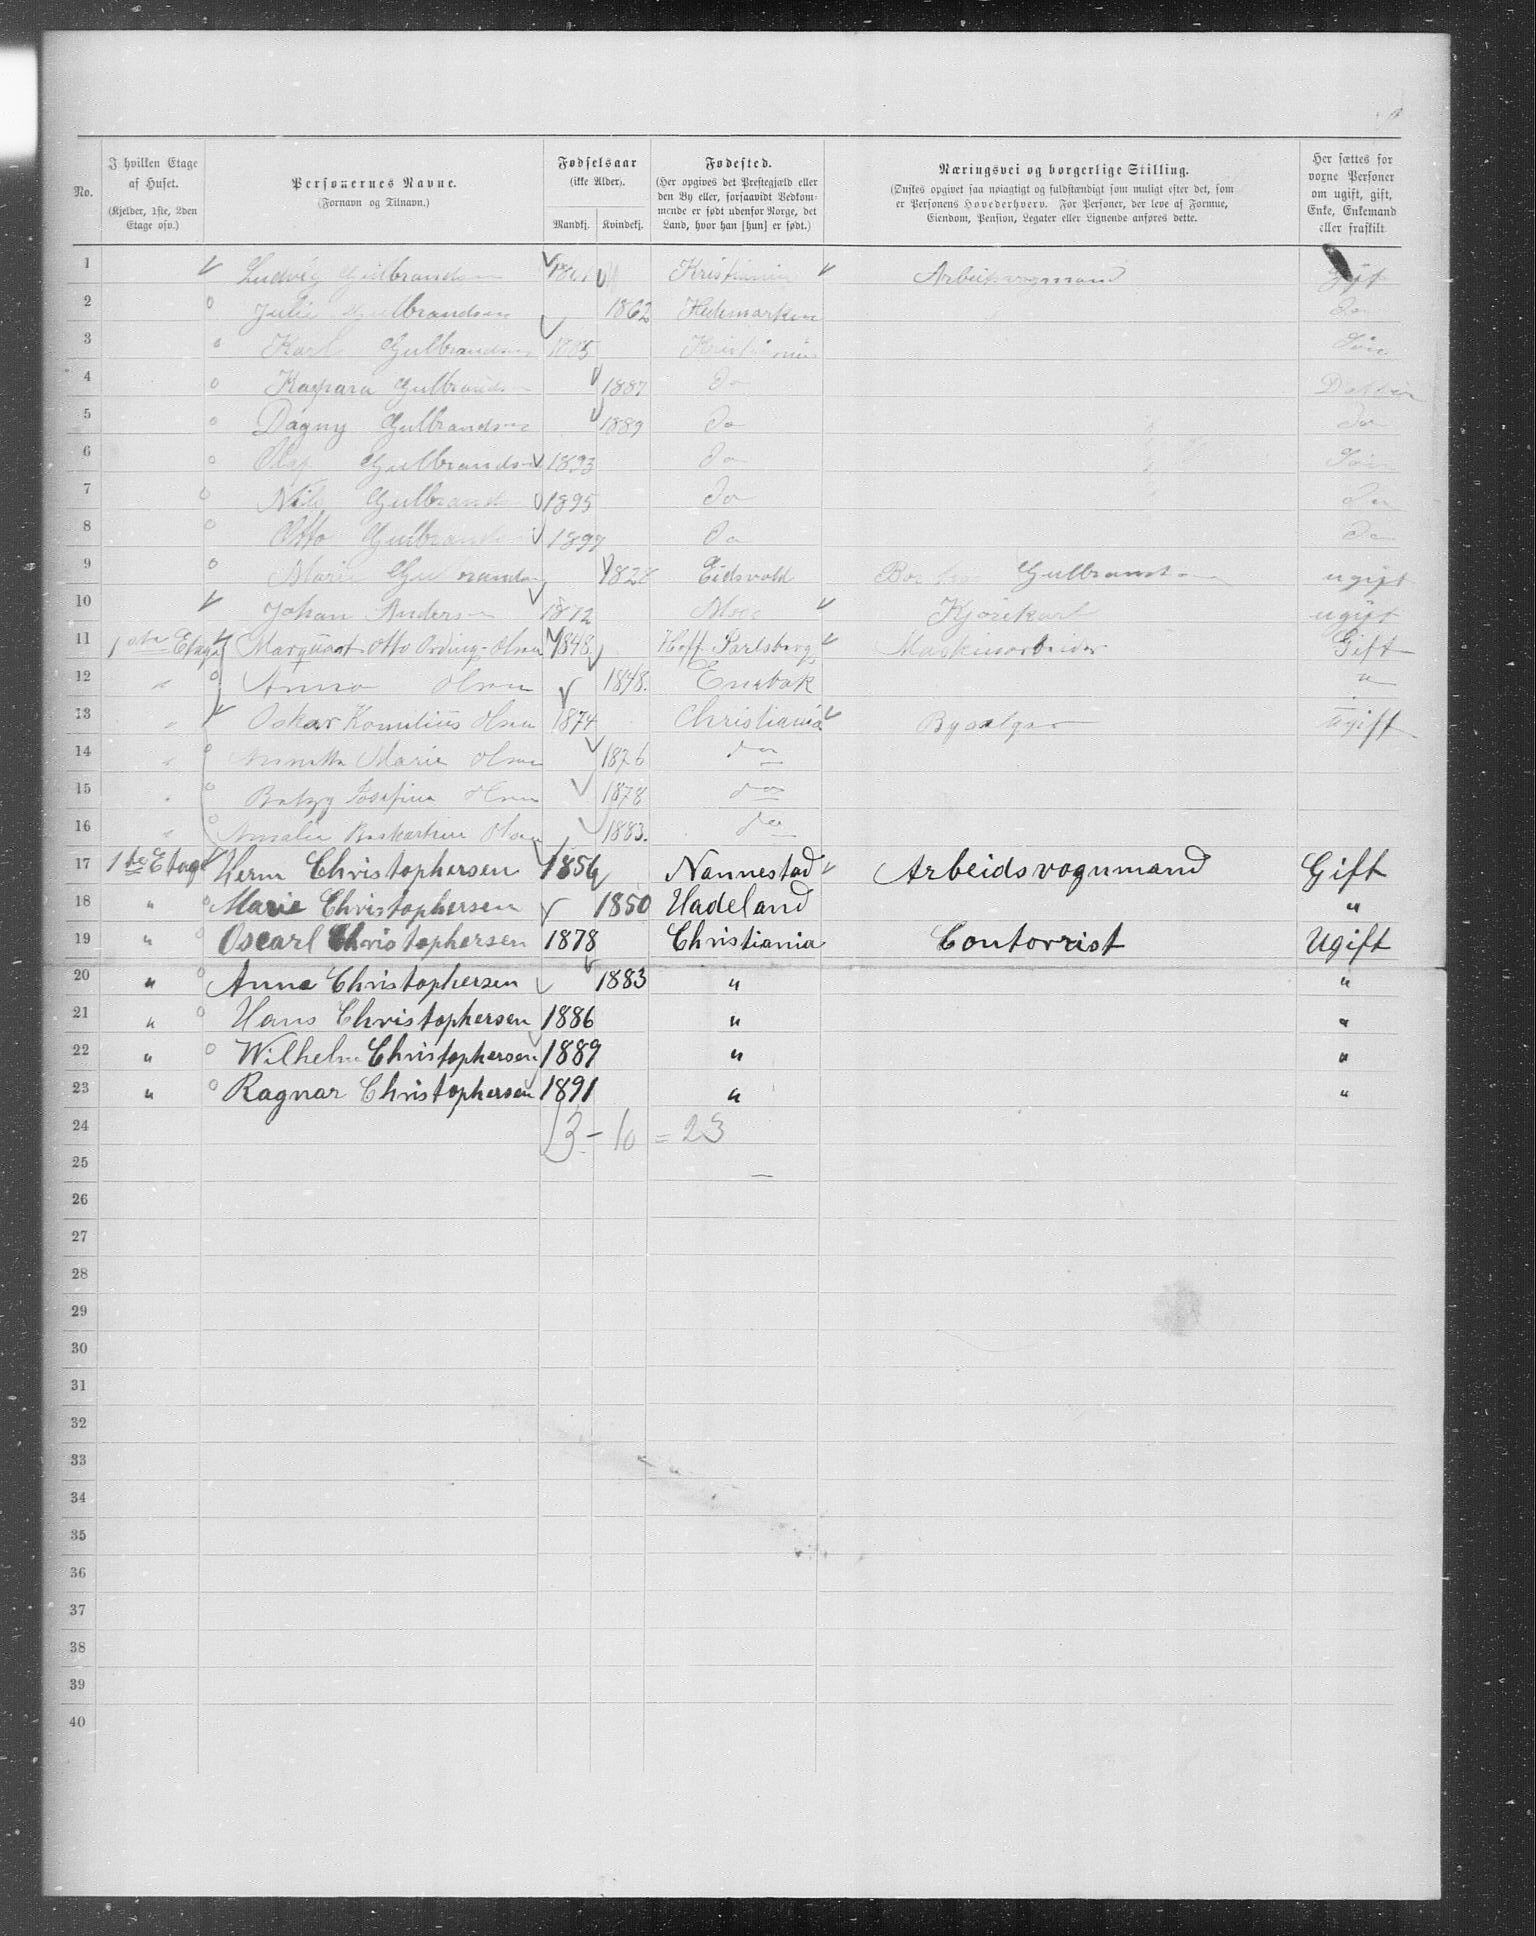 No.
I hvilken Etage af Huset.
(Kjelder, 1ste, 2den Etage osv.)
Personernes Navne.
(Fornavn og Tilnavn.)
Fødselsaar
(ikke Alder).
Mandkj. Kvindekj.
Fødested.
(Her opgives det Prestegjæld eller den By eller, forsaavidt Vedkommende er født udenfor Norge, det Land, hvor han [hun] er født.)
Næringsvei og borgerlige Stilling.
(Ønskes opgivet saa nøiagtigt og fuldstændigt som muligt efter det, som er Personens Hovederhverv. For Personer, der leve af Formue, Eiendom, Pension, Legater eller Lignende anføres dette.
Her sættes for voxne Personer om ugift, gift, Enke, Enkemand eller fraskilt
1 Ludvig Gulbrandsen Kristiania Arbeidsvognmand Gift
2 Julie Gulbrandsen 1862 Hedemarken Do
3 Karl Gulbrandsen Kristiania Søn
4 Kaspara Gulbrandsen 1887 Do Datter
5 Dagny Gulbrandsen 1889 Do Do
6 Gulbrandsen 1893 Do Søn
7 Nils Gulbrandsen 1895 Do Do
8 Otto Gulbrandsen 1897 Do Do
9 Marie Gulbrandsen Eidsvold Gulbrandsen ugift
10 Johan Andersen 1872 Moss Kjørekarl ugift
11 1ste Etage Otto Olsen 1848 Hoff Jarlsberg Maskinarbeider Gift
12 " Anna Olsen 1848. Enebak "
13 " Oskar Kornelius Olsen 1874 Christiania ugift
14 " Marie Olsen 1876 do
15 " Josefine Olsen 1878 do
16 " Amalie Olsen 1883. do
17 1ste Etage Herm Christophersen 1856 Nannestad Arbeidsvognmand Gift
18 " Marie Christophersen 1850 Hadeland "
19 " Oscarl Christophersen 1878 Christiania Contorrist Ugift
20 " Anna Christophersen 1883 " "
21 " Hans Christophersen 1886 " "
22 " Wilhelm Christophersen 1889 " "
23 " Ragnar Christophersen 1891 " "
24 13 - 10 = 23
25
26
27
28
29
30
31
32
33
34
35
36
37
38
39
40